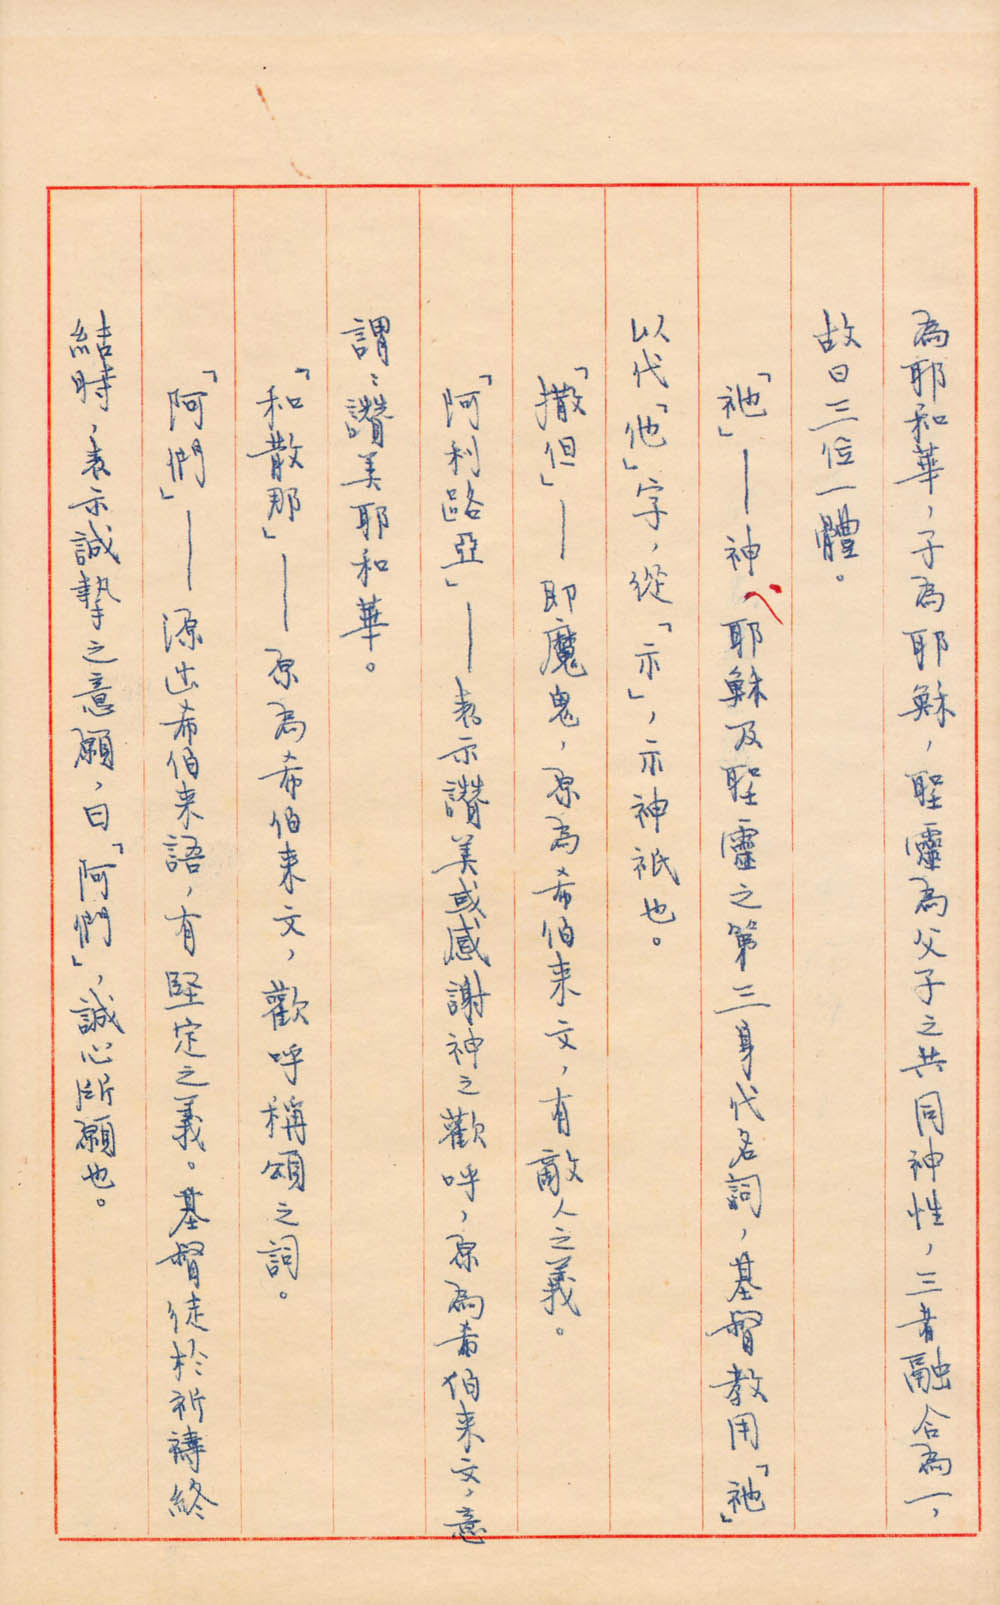 為耶和華，子為耶穌，聖靈為父子之共同神性，三者融合為一，
故曰三位一體。
「祂」——神、耶穌及聖靈之第三身代名詞，基督教用「祂」
以代「他」字，從「示」，示神祇也。
「撒但」——即魔鬼，原為希伯来文，有敵人之義。
「阿利路亞」——表示讚美或感謝神之歡呼，原為希伯来文，意
謂：讚美耶和華。
「和散那」——原為希伯来文，歡呼稱頌之詞。
「阿們」——源出希伯来語，有堅定之義。基督徒於祈禱終
結時，表示誠摯之意願，曰「阿們」，誠心所願也。